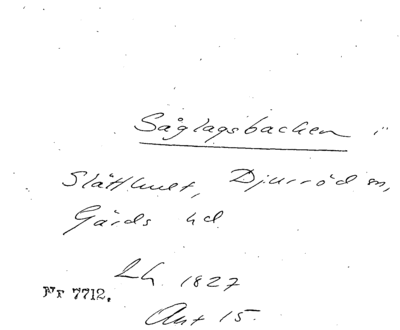 Såglagsbacken i
Slätthult, Djurröd sn,
Gärds hd
Lh. 1827
Nr 7712.
Akt 15.